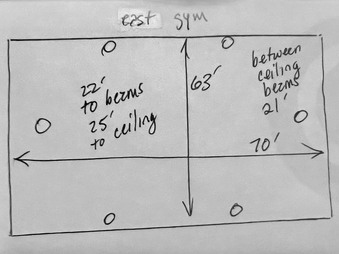 east gym
22'
to beams
25'
to ceiling
63'
between
ceiling
beams
21'
70'